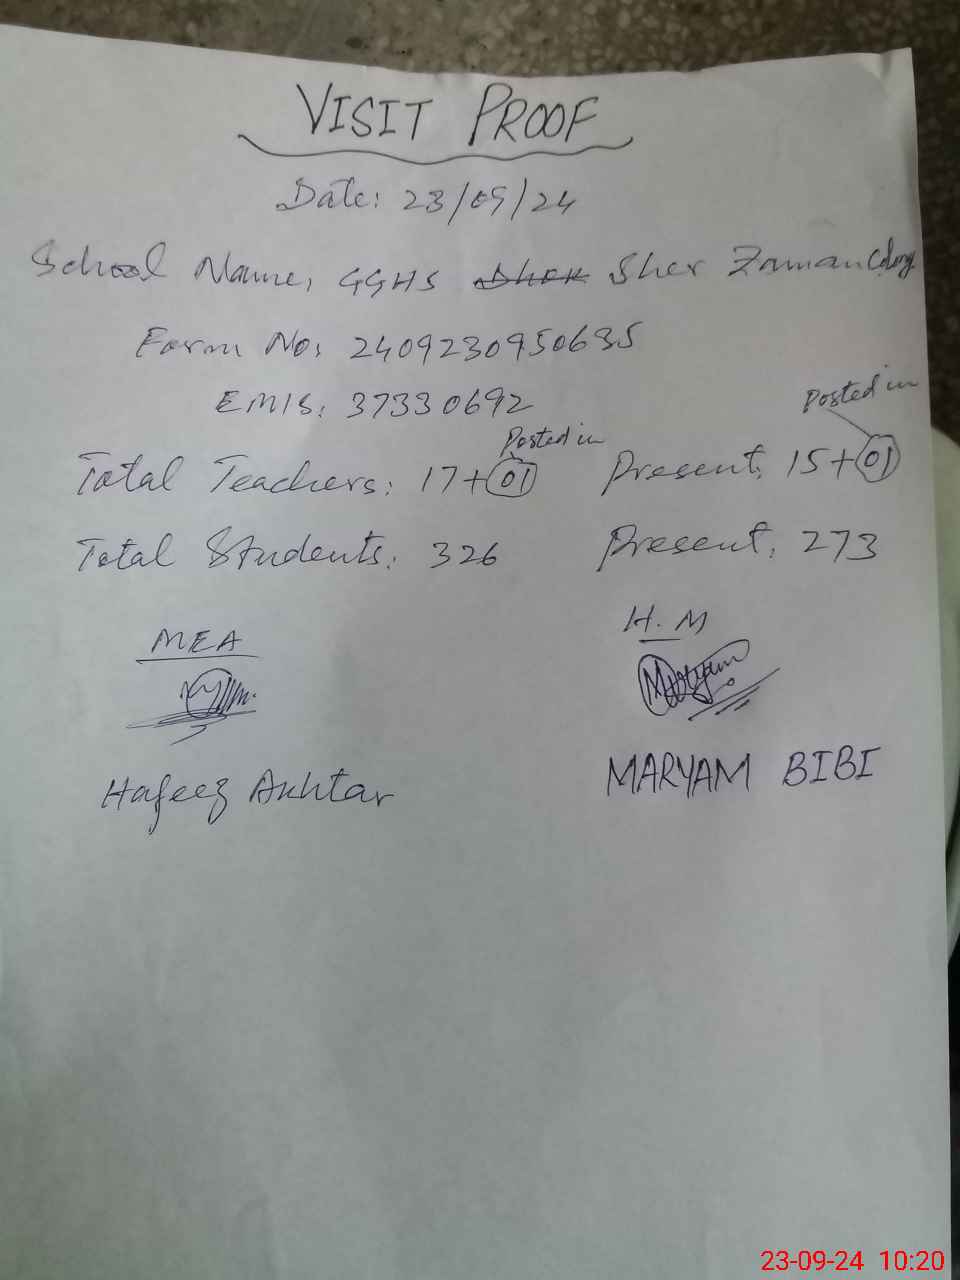 VISIT PROOF
Date: 23/09/24
School Name, GGHS Sher Zaman Colony
Farm No: 2409230950635
EMIS: 37330692
Posted in
Posted in
Total Teachers: 17+01 Present: 15+01
Total Students: 326 Present: 273
MEA H.M
Maryam
Hafeez Akhtar MARYAM BIBI
23-09-24 10:20